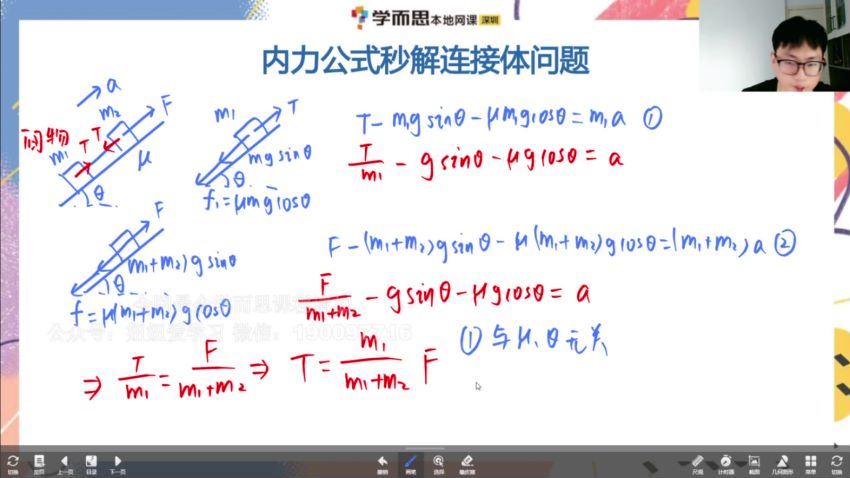 学而思本地网课 深圳
内力公式秒解连接体问题
a
m₂ F
m₁ T T μ
θ
m₁ T
mg sinθ
θ
f₁=μmg cosθ
T-m₁g sinθ-μm₁g cosθ=m₁a ①
T/m₁ - g sinθ-μg cosθ = a
F
(m₁+m₂)g sinθ
θ
f=μ(m₁+m₂)g cosθ
F-(m₁+m₂)g sinθ-μ(m₁+m₂)g cosθ=(m₁+m₂)a ②
F/(m₁+m₂) - g sinθ-μg cosθ = a
⇒ T/m₁ = F/(m₁+m₂) ⇒ T = m₁/(m₁+m₂) F
① 与μ、θ无关
切换 上一页 目录 下一页
撤销 画笔 选择 橡皮擦
尺规 计时器 截图 几何图形 菜单 切换